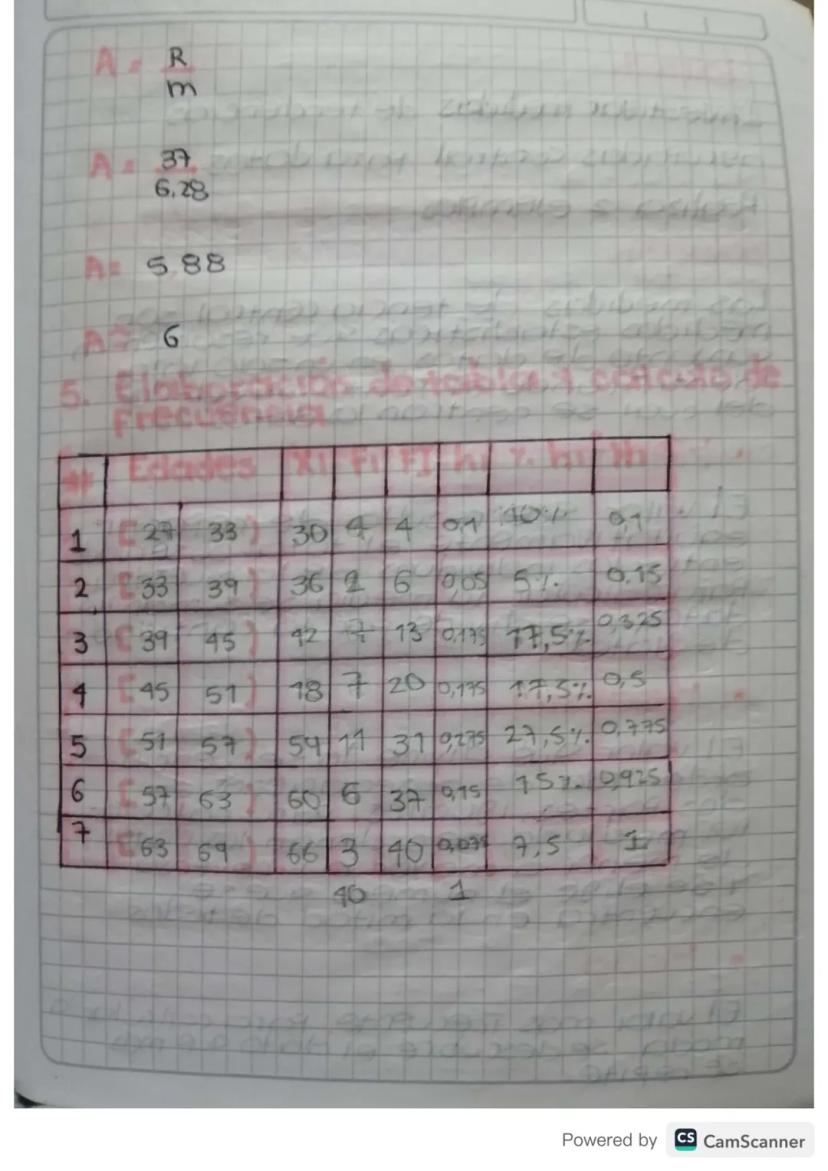 A = R
m
A = 37
6.28
A = 5.88
A = 6
5. Elaboración de tabla y calculo de
frecuencia
# Edades Xi Fi FI hi % hi
1 [27 33) 30 4 4 0,1 10% 0,1
2 [33 39) 36 2 6 0,05 5% 0.15
3 [39 45) 42 7 13 0,175 17,5% 0,325
4 [45 51) 48 7 20 0,175 17,5% 0,5
5 [51 57) 54 11 31 0,275 27,5% 0,775
6 [57 63) 60 6 37 0,15 15% 0,925
7 [63 69) 66 3 40 0,075 7,5 1
40 1
Powered by CS CamScanner